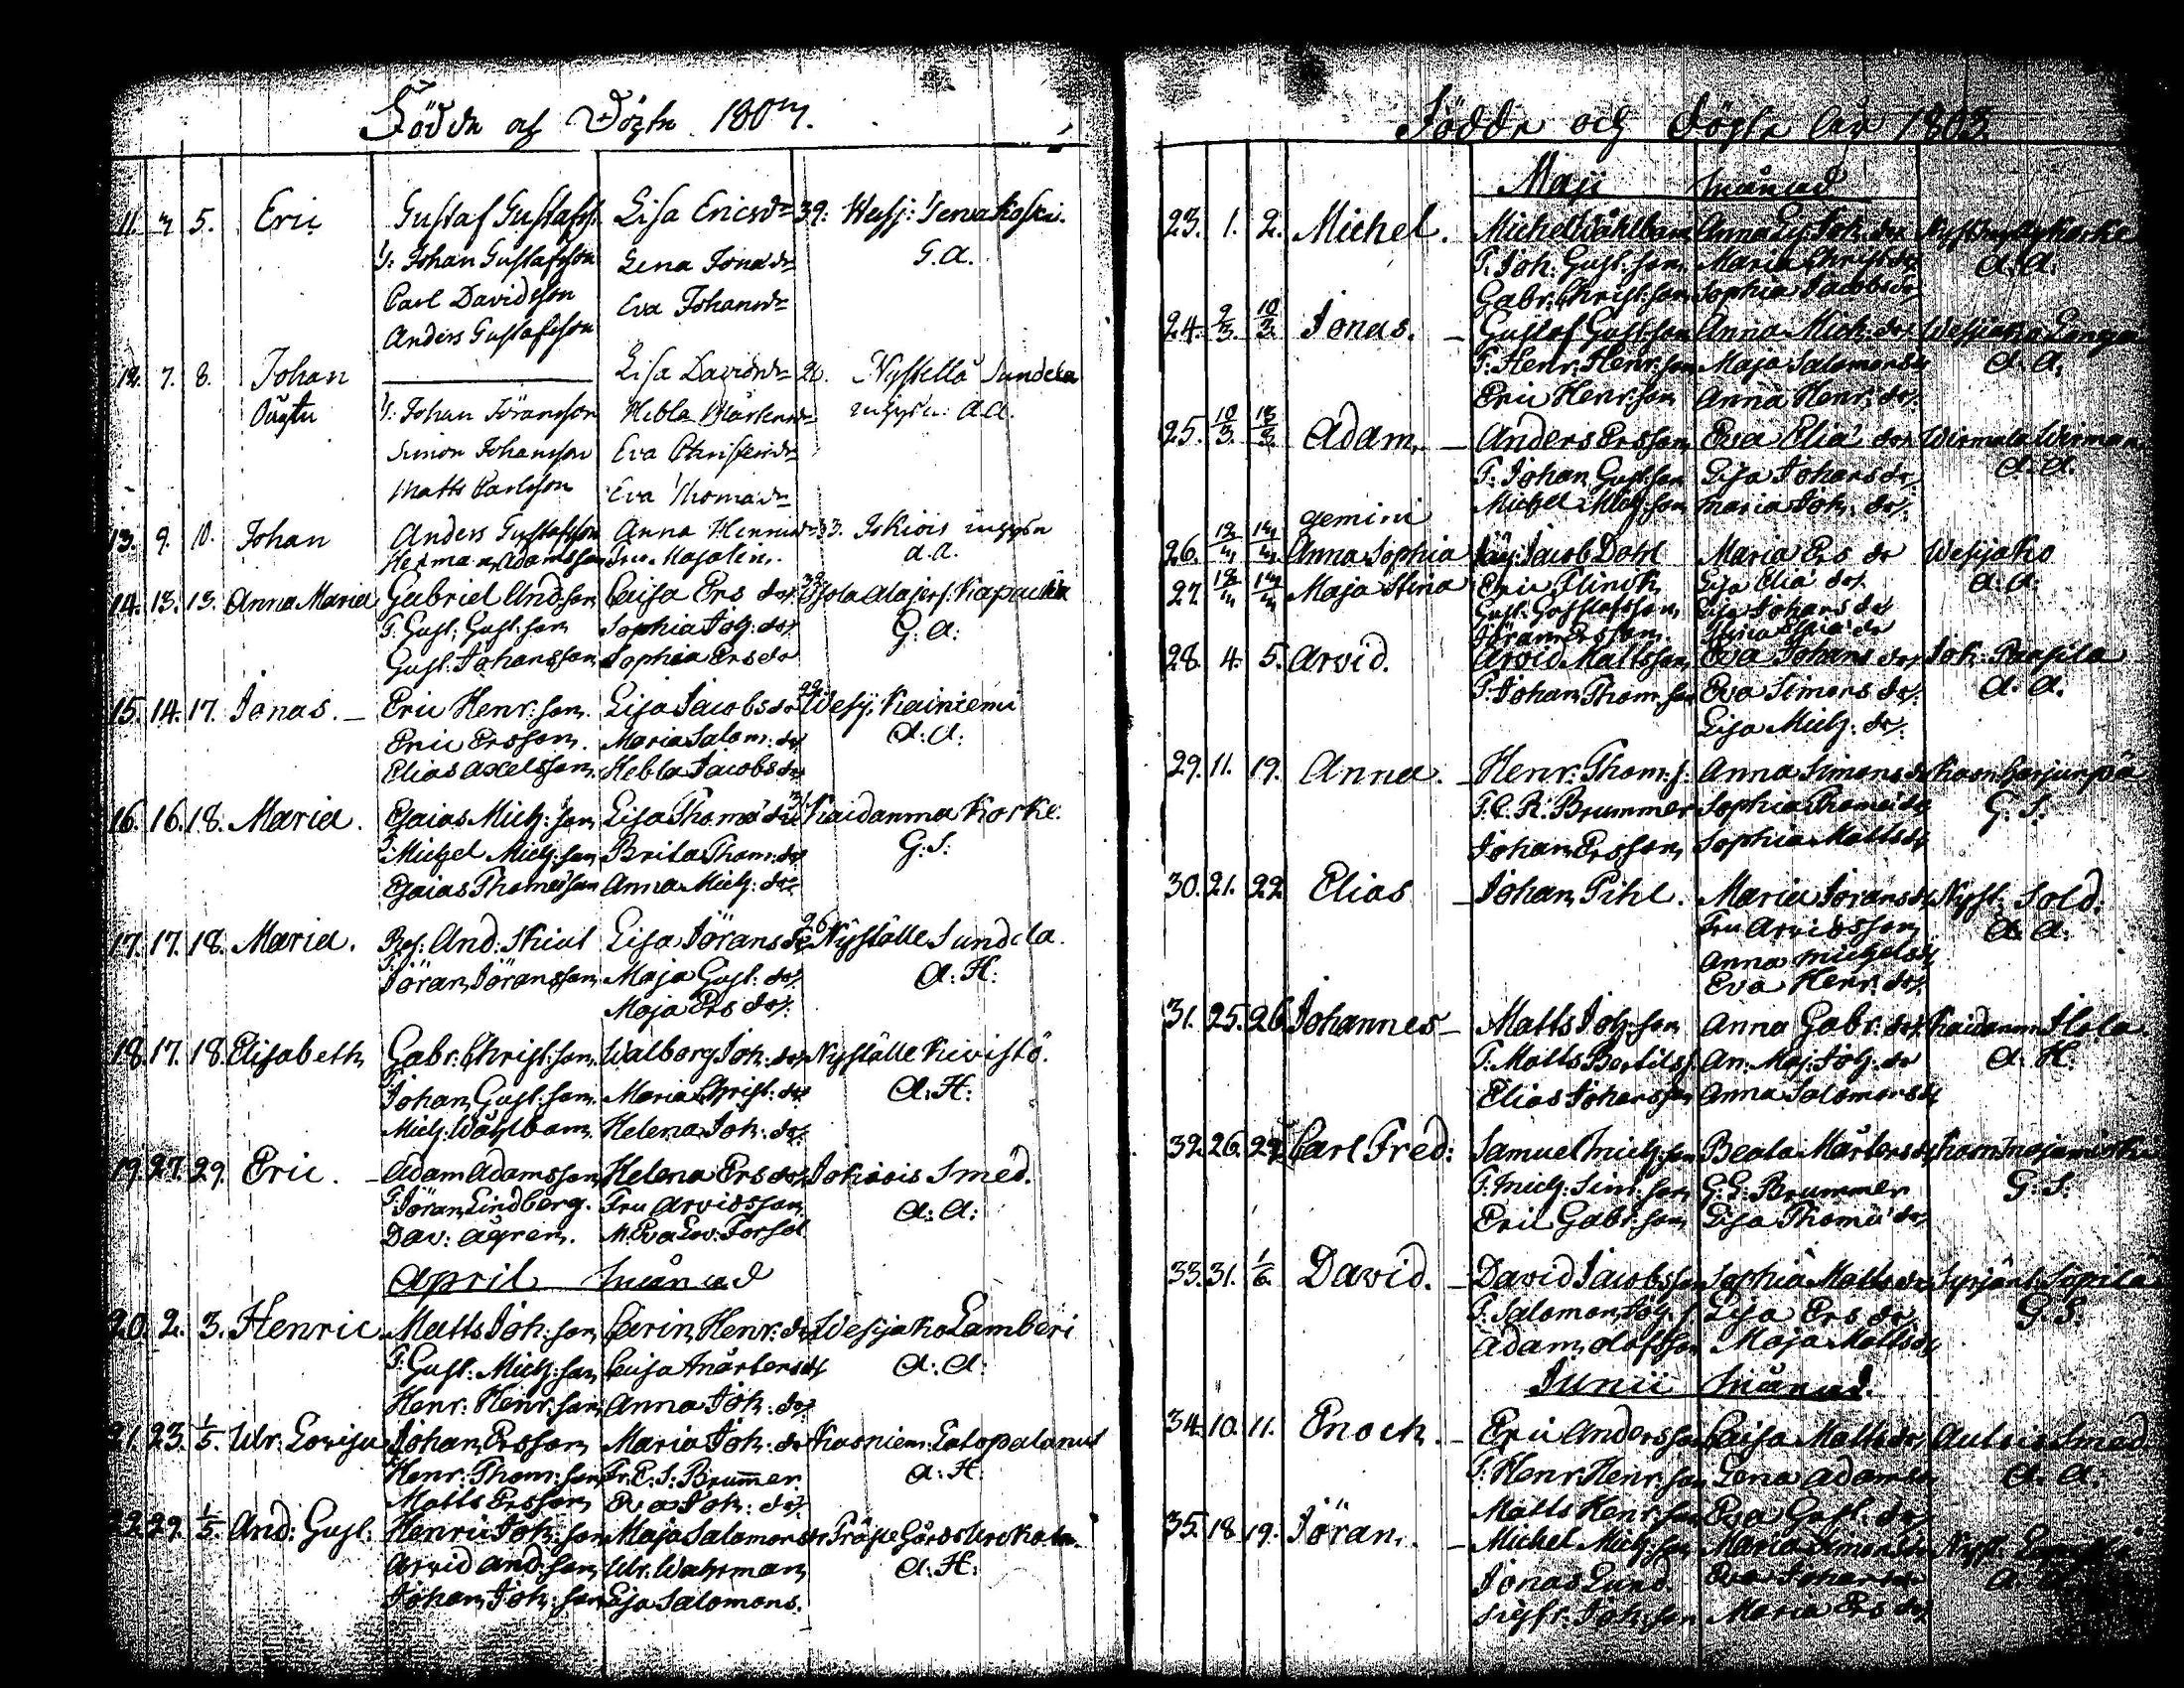 Födde och Döpte 1803.
11. 5. Eric Gustaf Gustafss. Lisa Ericsdr 39. Wessj: Tervakoski.
T: Johan Gustafsson Lena Jonadr G.A.
Carl Davidsson Eva Johansdr
Anders Gustafsson
12. 7. 8. Johan Lisa Davidsdr 26. Nystellä Sundela
Oägta T: Johan Jöransson Hebla Mårtensdr A.A.
Simon Johansson Eva Christersdr
Matts Carlsson Eva Thomadr
13. 9. 10. Johan Anders Gustafsson Anna Henricsdr 33. Jokiois
Herman Adamsson A.A.
14. 13. 13. Anna Maria Gabriel And:son Caisa Ers dr
T. Gust: Gust:son Sophia Joh: dr G: A:
Gust: Johansson Sophia Ers dr
15. 14. 17. Jonas. Eric Henr:son. Lisa Jacobs dr Wesij. Kainiemi
Eric Ersson. Maria Salom: dr A: A:
Elias Axelsson. Hebla Jacobs dr
16. 16. 18. Maria. Esaias Mich:son Lisa Thomä dr Kaidanma Korke.
Michel Mich:son Brita Thom: dr G: S:
Esaias Thomesson Anna Mich: dr
17. 17. 18. Maria. And: Lisa Jörans dr 26 Nyställe Sundela.
T: Jöran Jöransson Maja Gust: dr A: H:
Maja Ers dr
18. 17. 18. Elisabeth Gabr: Christ:son Walborg Joh: dr Nyställe Kivistö.
Johan Gust:son Maria Christ: dr A: H:
Mich: Wåhlbom. Helena Joh: dr
19. 27. 29. Eric. Adam Adamsson Helena Ers dr Jokiois Smed.
T: Jöran Lindberg. Fru Arvidsson A: A:
Dav: Ågren. M. Eva Lov: Forsel
April Månad
20. 2. 3. Henric. Matts Joh:son Carin Henr: dr Wesijako Lamberi
T: Gust: Mich:son Caisa Mårtens dr A: A:
Henr: Henr:son Anna Joh: dr
21. 23. 1/5. Ulr: Lovisa Johan Ersson Maria Joh: dr
Henr: Thom:son Fr. E: S: Brummer A: H:
Matts Ersson Eva Joh: dr
22. 29. 1/5. And: Gust: Henric Joh:son Maja Salomons dr
Arvid And:son Ulr: Wahrman A: H:
Johan Joh:son Lisa Salomons.
Födde och döpte åhr 1803.
Maji Månad
23. 1. 2. Michel. Michel Wåhlbom Anna Joh: dr
T: Joh: Gust:son Maria Christ: dr A: A:
Gabr: Christ:son Sophia Jacobs dr
24. 9/3. 10/3. Jonas. Gustaf Gust:son Anna Mich: dr
T: Henr: Henr:son Maja Salomons dr A: A.
Eric Henr:son Anna Henr: dr
25. Adam. Anders Ersson Eva Elia dr
T: Johan Gust:son Lisa Johans dr A. A.
Michel Maria Joh: dr
gemini
26. Anna Sophia Jacob Dahl Maria Ers dr Wesijako
27. Maja Stina Eric Flinck Lisa Elia dr A: A:
Gust: Gustafsson Lisa Johans dr
Jöran Ersson.
28. 4. 5. Arvid. Arvid Mattsson Eva Johans dr Jok: Paasila
T: Johan Thom:son Eva Simons dr A: A.
Lisa Mich: dr
29. 11. 19. Anna. Henr: Thom: s. Anna Simons dr
T: C. R. Brummer Sophia Thomä dr G: S:
Johan Ersson Sophia Matts dr
30. 21. 22. Elias Johan Pihl. Maria Jörans dr Nyst: Sold.
Fru Arvidsson A: A:
Anna Michels dr
Eva Henr: dr
31. 25. 26. Johannes Matts Joh:son Anna Gabr: dr
T: Matts Bertils s. An: Maj: Joh: dr A: H:
Elias Johansson Anna Salomons dr
32. 26. Carl Fred: Samuel Mich:son Beata Mårtens dr
T: Mich: Sim:son G: E: Brummer G: S:
Eric Gabr:son Lisa Thomä dr
33. 31. 1/6. David. David Jacobsson Sophia Matts dr
T: Salomon Joh: s. Lisa Ers dr G: S:
Adam Olofsson Maja Matts dr
Junii Månad.
34. 10. 11. Enoch. Eric Andersson Caisa Matts dr
T: Henr: Henr:son Lena Adams dr A: A:
Matts Henr:son Eva Gust: dr
35. 18. 19. Jöran. Michel Mich:son Maria Simons dr
Jonas Lund. Eva Johans dr
Sigfr: Joh:son Maria Ers dr